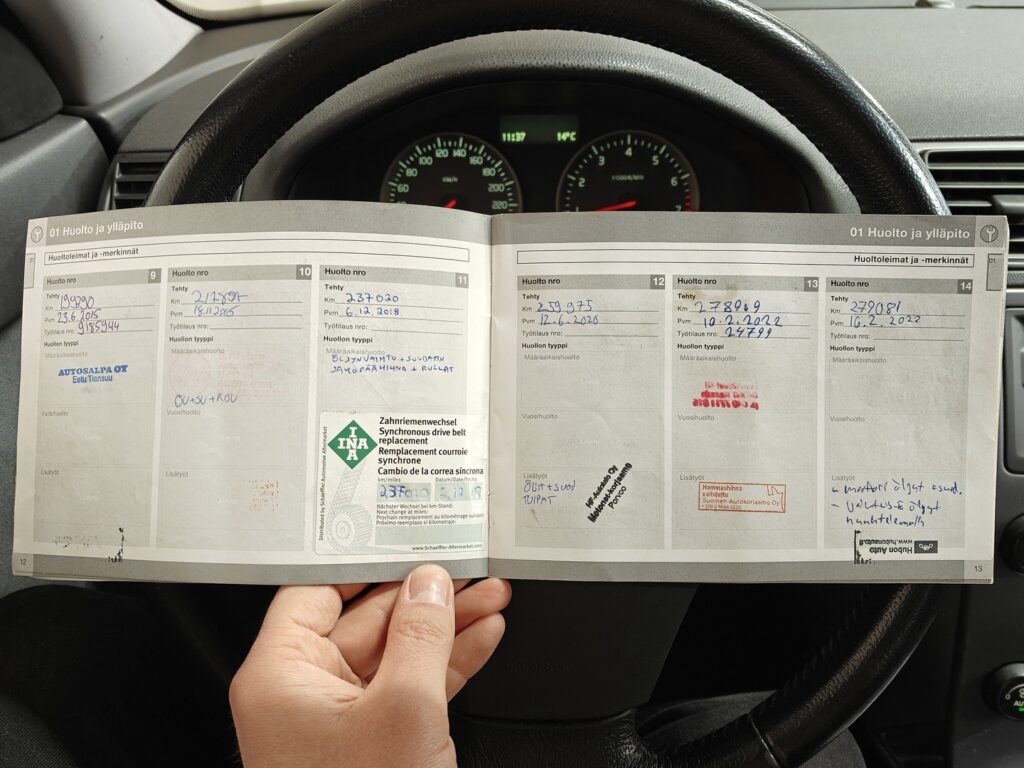 11:37 14°C
60 80 100 120 140 160 180 200 220
KM/H
2 3 4 5 6 7
01 Huolto ja ylläpito
Huoltoleimat ja -merkinnät
Huolto nro 9
Tehty
Km
Pvm 23.6.2015
Työtilaus nro: 9185944
Huollon tyyppi
Määräaikaishuolto
AUTOSALPA OY
Eetu Tiensuu
Vuosihuolto
Lisätyöt
12
Huolto nro 10
Tehty
Km
Pvm 18.11.2015
Työtilaus nro:
Huollon tyyppi
Määräaikaishuolto
Vuosihuolto
Lisätyöt
Huolto nro 11
Tehty
Km 237020
Pvm 6.12.2018
Työtilaus nro:
Huollon tyyppi
Määräaikaishuolto
ÖLJYNVAIHTO + SUODATIN
JAKOPÄÄHIHNA + RULLAT
INA
Zahnriemenwechsel
Synchronous drive belt
replacement
Remplacement courroie
synchrone
Cambio de la correa síncrona
km/miles Datum/Date/Fecha
237020
Nächster Wechsel bei km-Stand:
Next change at miles:
Prochain remplacement au kilométrage suivant:
Próximo reemplazo si kilometraje:
www.Schaeffler-Aftermarket.com
Distributed by Schaeffler Automotive Aftermarket
01 Huolto ja ylläpito
Huoltoleimat ja -merkinnät
01
Huolto nro 12
Tehty
Km 259975
Pvm 12.6.2020
Työtilaus nro:
Huollon tyyppi
Määräaikaishuolto
Vuosihuolto
Lisätyöt
ÖLJT + SUOD
TULPAT
HP-Autotalo Oy
Porvoo
Huolto nro 13
Tehty
Km 278969
Pvm 10.2.2022
Työtilaus nro: 24799
Huollon tyyppi
Määräaikaishuolto
Vuosihuolto
Lisätyöt
Hammashihna
vaihdettu
Suomen Autokorjaamo Oy
Huolto nro 14
Tehty
Km 279081
Pvm 16.2.2022
Työtilaus nro:
Huollon tyyppi
Määräaikaishuolto
Vuosihuolto
Lisätyöt
- moottori öljyt + suod.
- vaihteisto öljyt
huuhtelemalla
Hubon Auto
www.hubonauto.fi
13